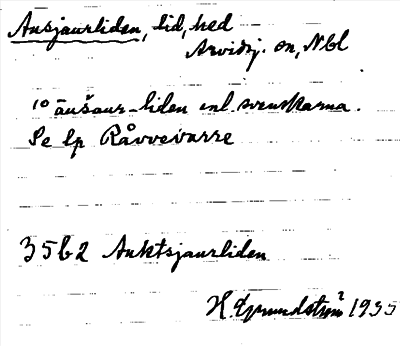 Ansjaurliden, lid, hed
Arvidsj. sn, Nbl
10 äušaur-liden enl. svenskarna.
Se lp Råvvevarre
35b2 Auktsjaurliden
H. Grundström 1935